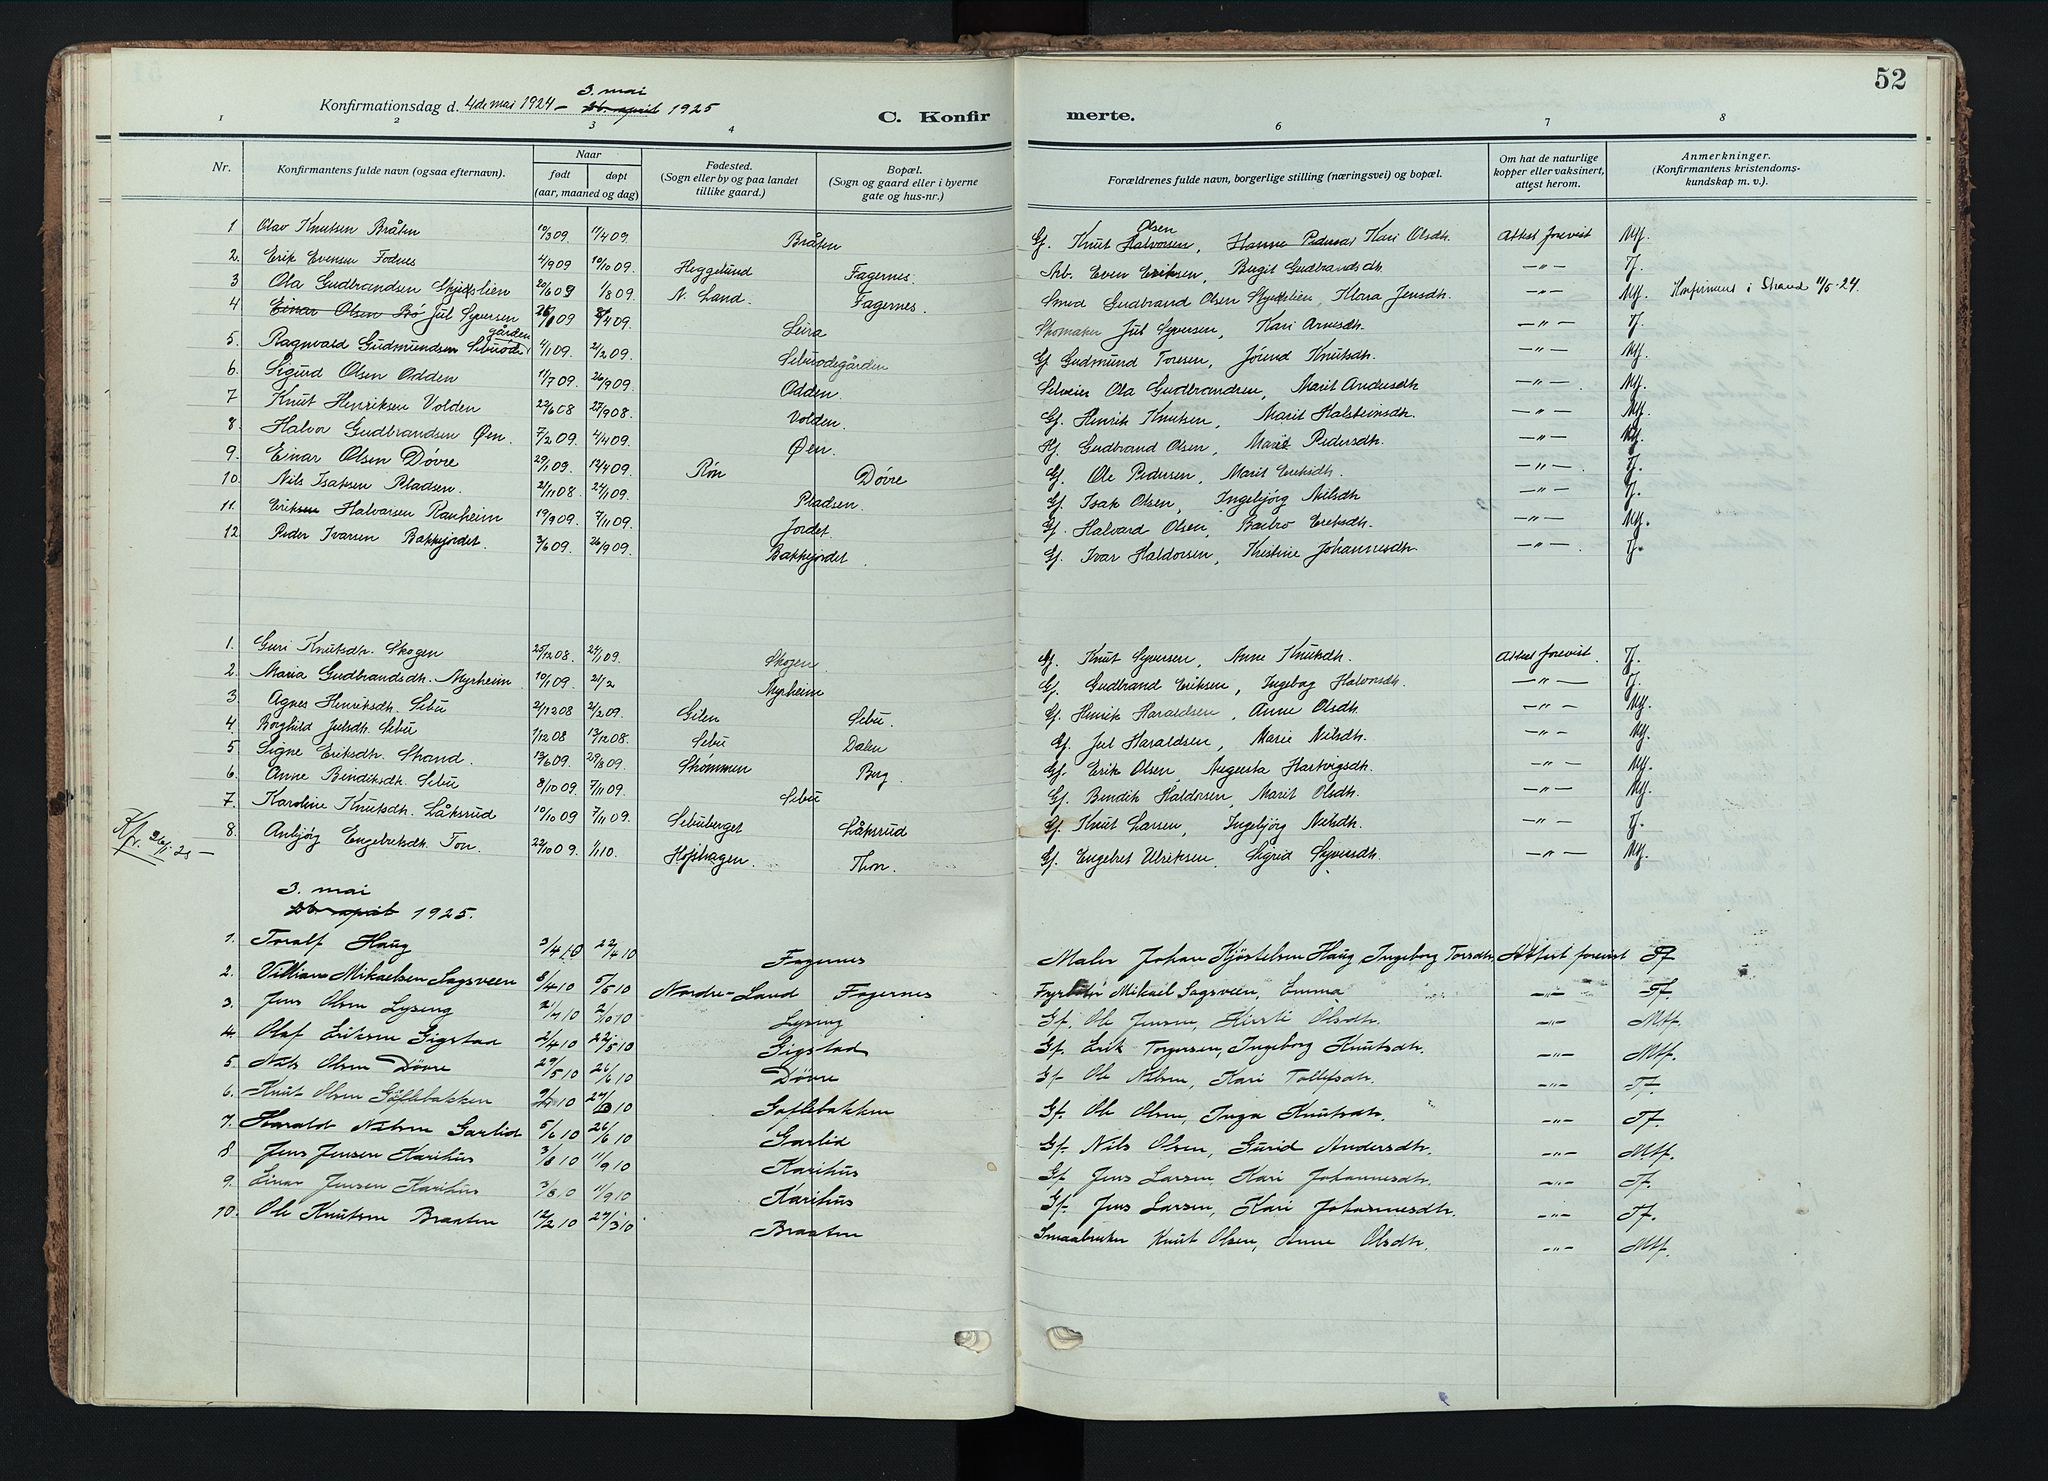 52
Konfirmationsdag d. 4de mai 1924 - 3. mai 26. april 1925
C. Konfirmerte.
1 2 3 4 6 7 8
Nr. Konfirmantens fulde navn (ogsaa efternavn). Naar født døpt (aar, maaned og dag) Fødested. (Sogn eller by og paa landet tillike gaard.) Bopæl. (Sogn og gaard eller i byerne gate og hus-nr.) Forældrenes fulde navn, borgerlige stilling (næringsvei) og bopæl. Om hat de naturlige kopper eller vaksinert, attest herom. Anmerkninger. (Konfirmantens kristendomskundskap m. v.).
1 Olav Knutsen Bråten 10/3 09. 11/4 09. Bråten Gf. Knut Halvorsen Olsen, Hanne Pedersd. Kari Olsdh. Attest forevist Mtf.
2. Erik Evensen Fodnes 4/9 09 10/10 09. Heggelund Fagernes. Arb. Even Eriksen, Birgit Gudbrandsdh. —"— Tf.
3 Ola Gudbrandsen Skjidslien 20/6 09 1/8 09. N. Land. Fagernes. Smed Gudbrand Olsen Skjidslien, Klara Jensdh. —"— Mtf. Konfirmert i Strand 11/5-24.
4 Einar Olsen Bø Jul Syversen Leira Skomaker Jul Syversen, Kari Arnesdh. —"— Tf.
5. Ragnvald Gudmundsen Sebuødegården 4/1 09. 21/2 09. Sebuødegården Gf. Gudmund Toresen, Jørend Knutsdh. —"— Mtf.
6. Sigurd Olsen Odden 11/7 09. 26/9 09. Odden. Selveier Ola Gudbrandsen, Marit Andersdh. —"— Mtf.
7 Knut Henriksen Volden 22/6 08 27/9 08. Volden. Gf. Henrik Knutsen, Marit Halsteinsdh. —"— Mtf.
8. Halvor Gudbrandsen Øen. 7/2 09. 4/4 09. Øen. Gf. Gudbrand Olsen, Marit Pedersdh. —"— Mtf.
9. Einar Olsen Døvre 29/1 09. 12/4 09. Røn Døvre Gf. Ole Pedersen, Marit Eriksdh. —"— Tf.
10. Nils Isaksen Pladsen. 21/11 08. 24/1 09. Pladsen. Gf. Isak Olsen, Ingebjørg Nilsdh. —"— Tf.
11. Eriksen Halvarsen Ranheim 19/9 09. 7/11 09. Jordet. Gf. Halvard Olsen, Barbro Eriksdh. —"— Mtf.
12. Peder Ivarsen Bakkjordet. 3/6 09. 26/9 09. Bakkjordet Gf. Ivar Haldorsen, Kristine Johannesdh. —"— Tf.
1. Guri Knutsdh. Skogen 25/12 08. 24/1 09. Skogen Gf. Knut Syversen, Anne Knutsdh. Attest forevist. Tf.
2. Maria Gudbrandsdh. Myrheim 10/1 09. 21/2 Myrheim Gf. Gudbrand Eriksen, Ingebog Halvorsdh. —"— Tf.
3 Agnes Henriksdh. Sebu 21/12 08 21/2 09. Geilen Sebu. Gf. Henrik Haraldsen, Anne Olsdh. —"— Mtf.
4 Borghild Julsdh. Sebu 1/12 08 13/12 08. Sebu Dalen Gf. Jul Haraldsen, Marie Nilsdh. —"— Mtf.
5. Signe Eriksdh. Strand. 13/6 09. 29/8 09. Strømmen Berg. Gf. Erik Olsen, Augusta Hartvigsdh. —"— Mtf.
6. Anne Bendiksdh. Sebu 8/10 09. 7/11 09. Sebu Gf. Bendik Haldorsen, Marit Olsdh. —"— Mtf.
7. Karoline Knutsdh. Låksrud 10/10 09 7/11 09. Sebuberget Låksrud Gf. Knut Larsen, Ingebjørg Nilsdh. —"— Tf.
8. Anbjørg Engebretsdh. Ton. 22/10 09. 1/1 10. Hofshagen Thon. Gf. Engebret Ulriksen, Sigrid Syversdh. —"— Mtf.
3. mai
26. april 1925.
1. Toralf Haug 3/4 10 22/4 10 Fagernes Maler Johan Kjöstelsen Haug, Ingeborg Torsdh. Attest forevist Tf
2. Villiam Mikaelsen Sagsveen 8/4 10 5/5 10 Nordre-Land Fagernes Mikael Sagsveen, Emma —"— Tf.
3. Jens Olsen Lysing Lysing Gf. Ole Jensen, Kirsti Olsdh. —"— Mtf.
4. Olaf Eriksen Gigstad 2/4 10 22/5 10 Gigstad Gf. Erik Torgersen, Ingeborg Knutsdh. —"— Mtf.
5. Nils Olsen Døvre 29/5 10 26/6 10 Døvre Gf. Ole Nilsen, Kari Tollefsdh. —"— Tf.
6. Knut Olsen Goflebakken Goflebakken Gf. Ole Olsen, Inga Knutsdh. —"— Tf.
7. Harald Nilsen Garlid 5/6 10 26/6 10 Garlid Gf. Nils Olsen, Gurid Andersdh. —"— Mtf.
8 Jens Jensen Karihus 3/8 10 11/9 10 Karihus Gf. Jens Larsen, Kari Johannesdh. —"— Tf.
9. Einar Jensen Karihus 3/8 10 11/9 10 Karihus Gf. Jens Larsen, Kari Johannesdh. —"— Tf.
10. Ole Knutsen Braaten 12/2 10 27/3 10 Braaten Smaabruker Knut Olsen, Anne Olsdh. —"— Mtf.